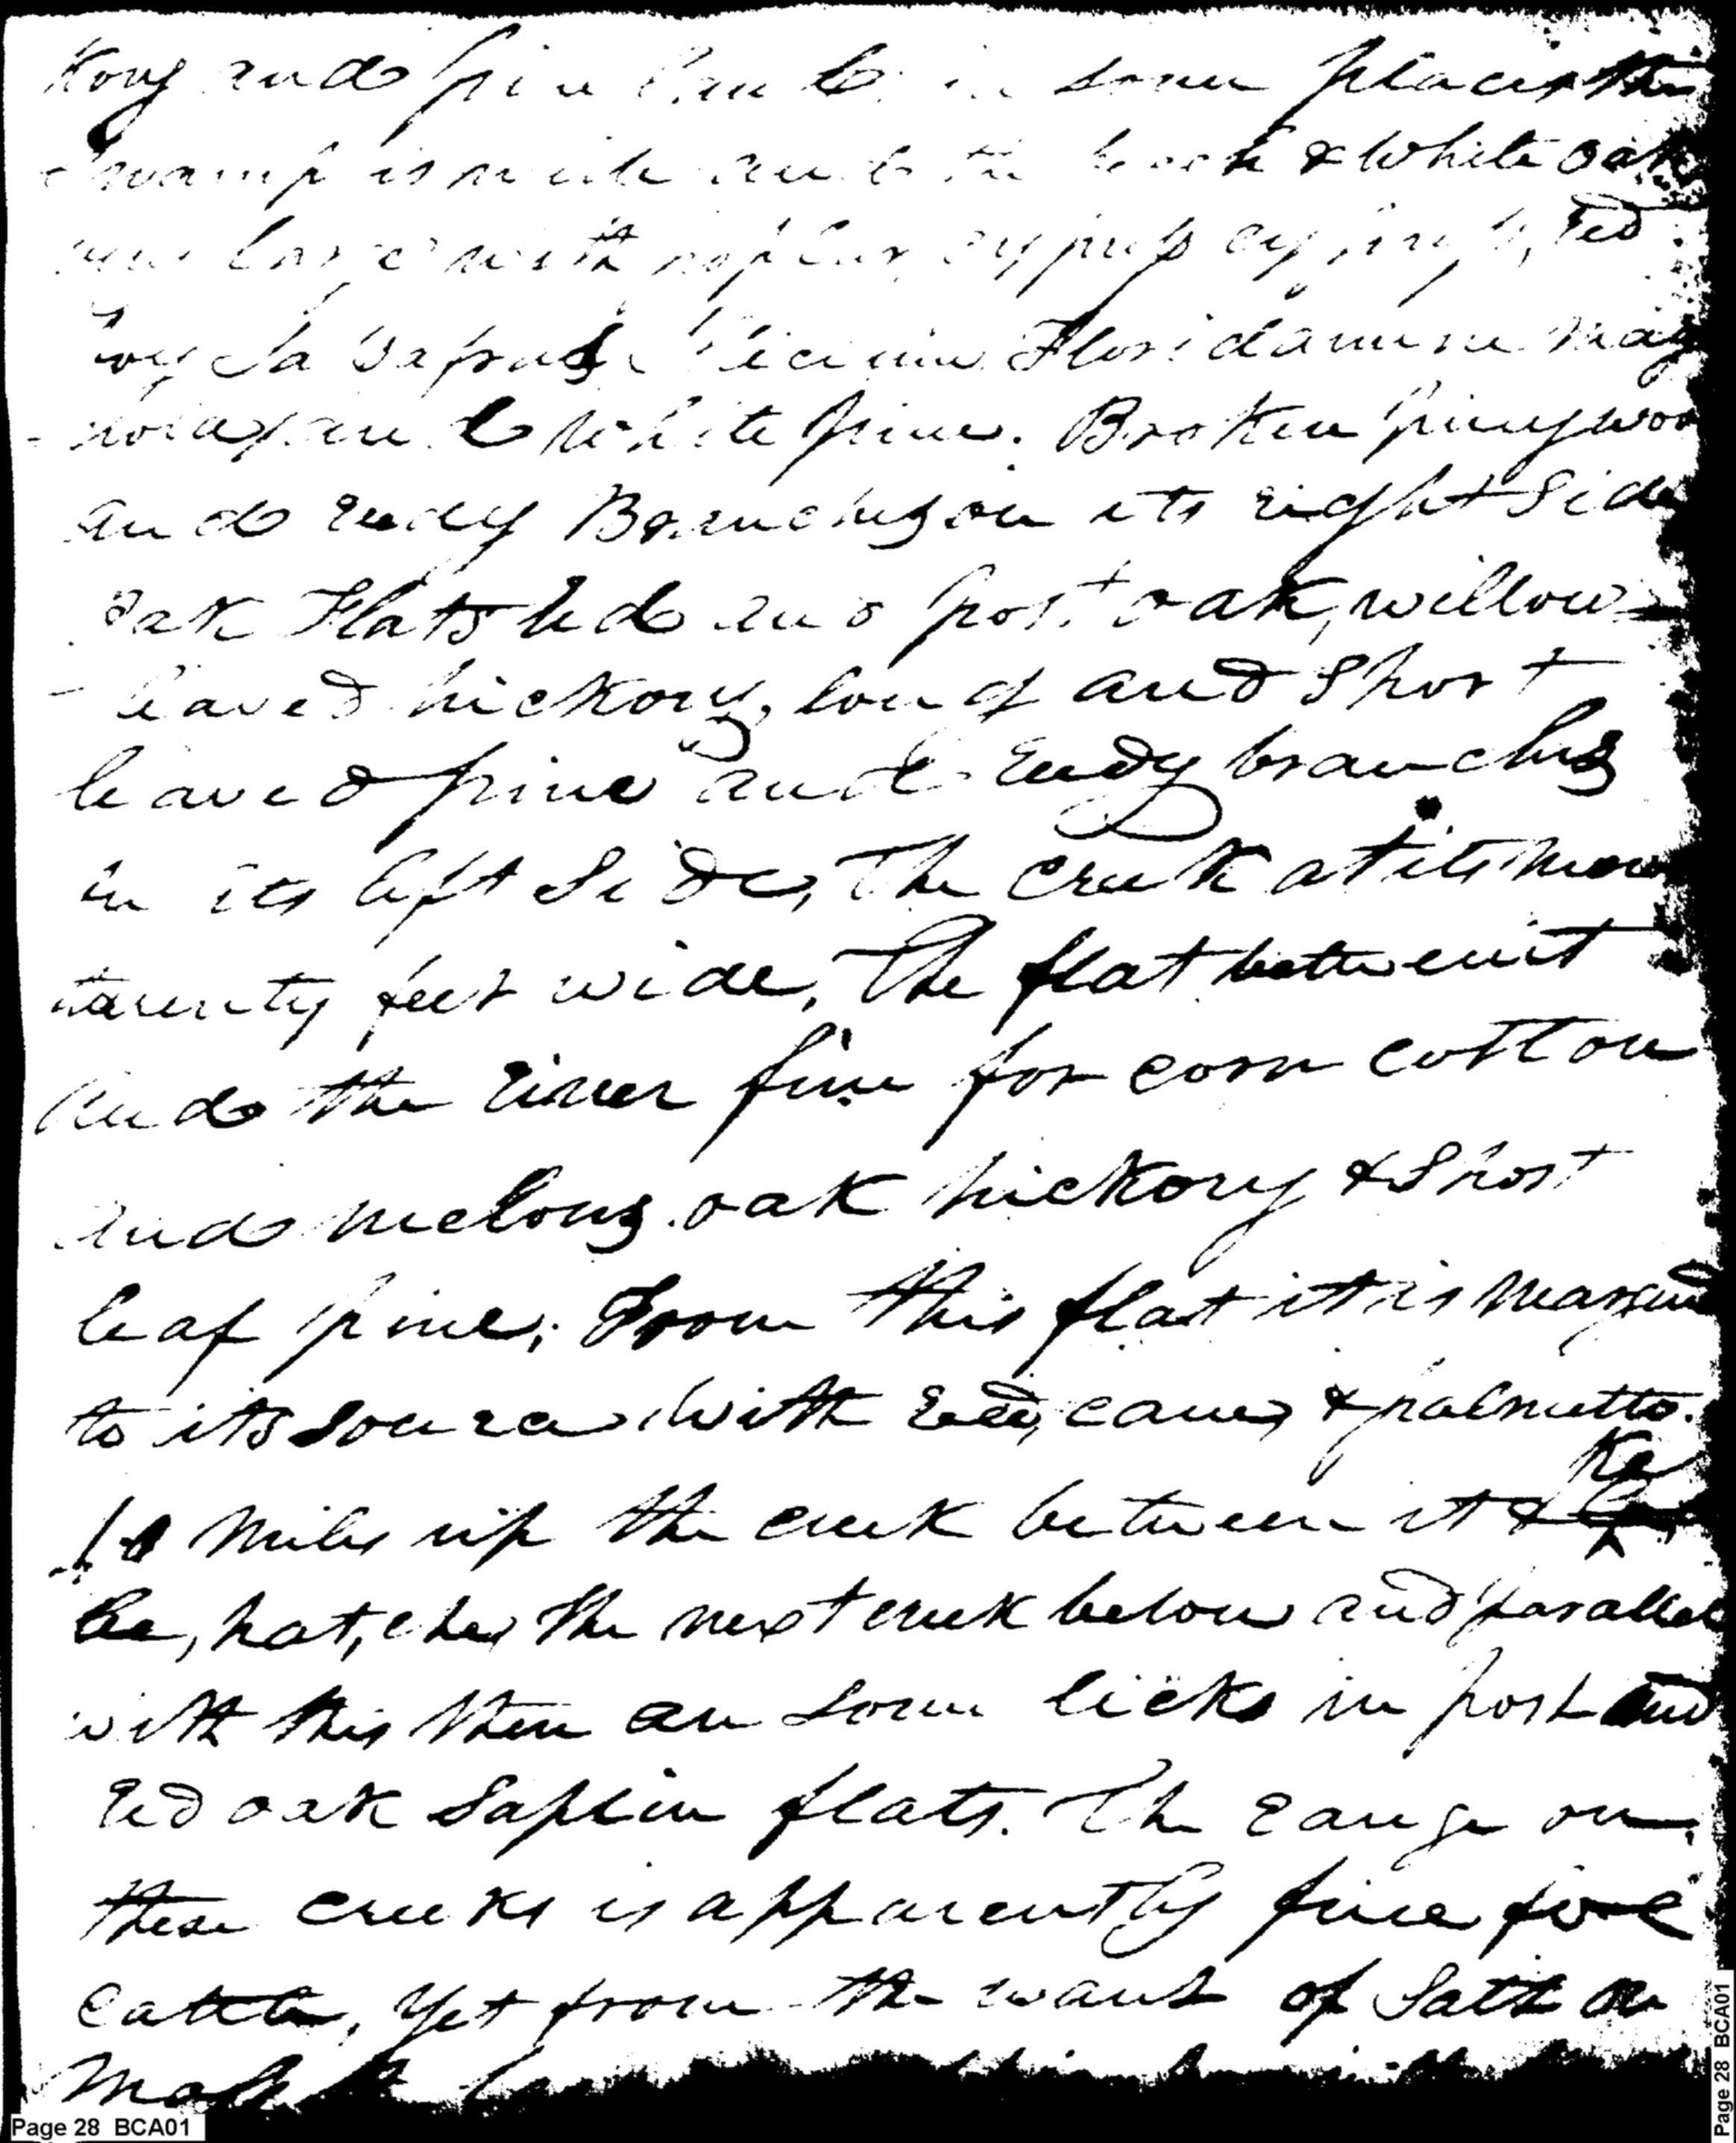 kory and pine land in some places the
swamp is wide and the beech & White oak
very large with poplar, cypress red
bay Sassafras Floridamine mag
- nolia, and white pine. Broken pineywoo
and reedy Branches on its right Side
oak Flats red and post oak, willow-
- leaved hickory, long and short
leaved pine and reedy branches
on its left Side, The creek at its mou
twenty feet wide, The flat between it
and the river fine for corn cotton
and melons. oak hickory & Short
leaf pine; From this flat it is margind
to its source with reed, cane, & palmetto.
10 miles up the creek between it & Ke
le, hat, che, the next creek below and parallel
with this there are some licks in post and
red oak Saplin flats. The range on
these creeks is apparently fine for
cattle, yet from the want of Salt or
Page 28 BCA01
Page 28 BCA01